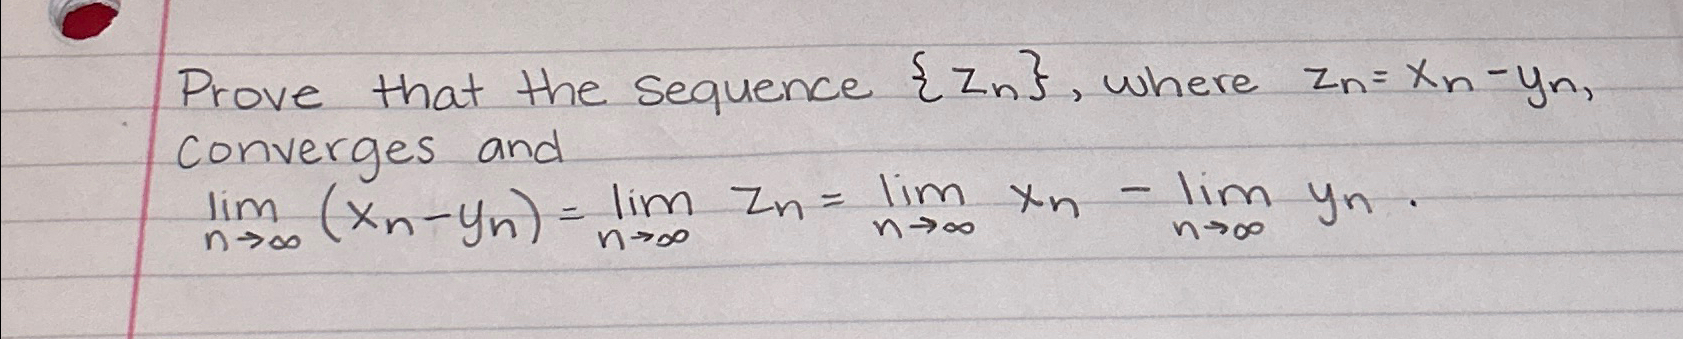 Prove that the sequence {zn}, where zn = xn - yn,
converges and
lim n→∞ (xn - yn) = lim n→∞ zn = lim n→∞ xn - lim n→∞ yn.